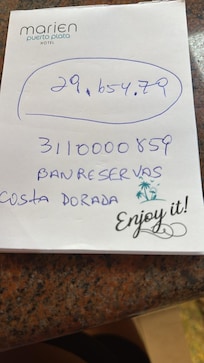 marien
puerto plata
HOTEL
29.654.79
3110000859
BANRESERVAS
COSTA DORADA
Enjoy it!